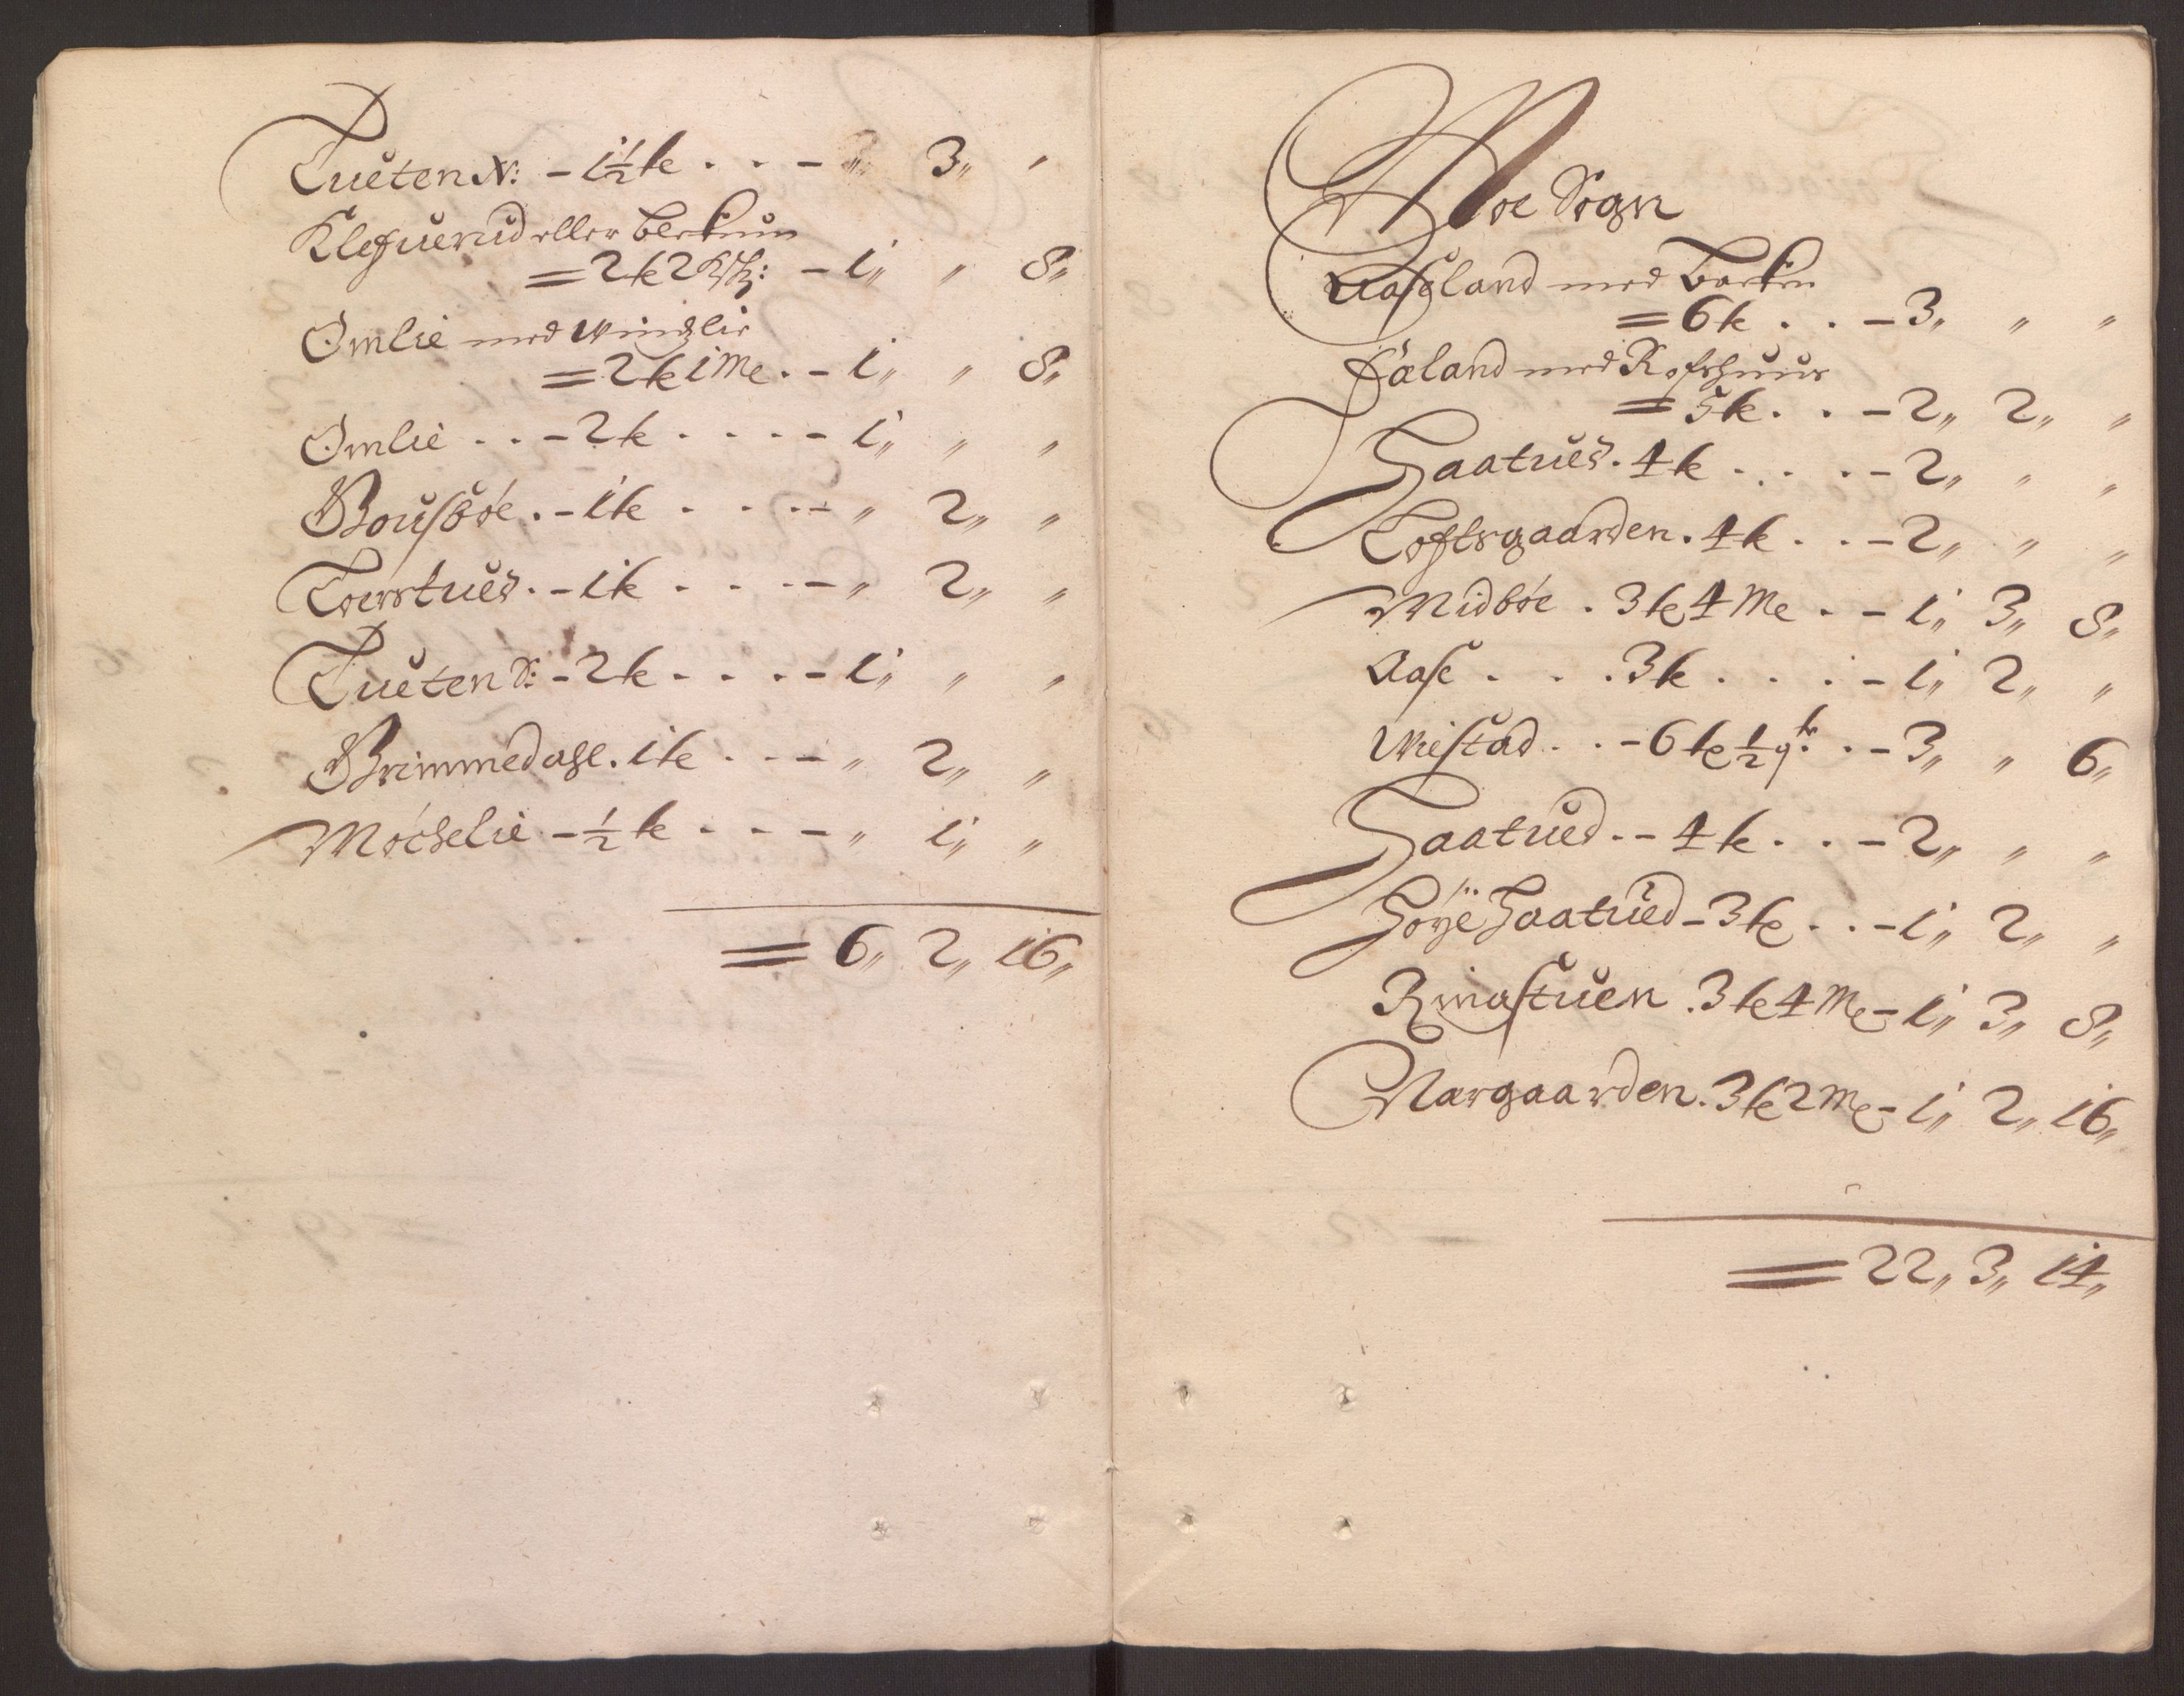 Tueten N: - 1½ k . . - „ 3„ „
Klefuerud eller Berkuin
= 2 k 2 Kſk: - 1„ „ 8„
Omlie med Windlie
= 2 k 1 Me . - 1„ „ 8„
Omlie . . - 2 k . . . . - 1„ „ „
Bousböe . - 1 k . . . - „ 2„ „
Toerstued . - 1 k . . . - „ 2„ „
Tueten S: - 2 k . . . - 1„ „ „
Brimmedahl . 1 k . . - „ 2„ „
Möchelie - ½ k . . - „ 1„ „
= 6„ 2„ 16„
Moe Sogn
Aaseland med Backen
= 6 k . . - 3„ „ „
Faland med Rofshuus
= 5 k . . - 2„ 2„ „
Haatued . 4 k . . . - 2„ „ „
Loftsgaarden . 4 k . . - 2„ „ „
Midböe . 3 k 4 Me . - 1„ 3„ 8„
Aase . . . 3 k . . . - 1„ 2„ „
Wiestad . . - 6 k ½ qr . - 3„ „ 6„
Haatued . - 4 k . . - 2„ „ „
Höye Haatued - 3 k . . - 1„ 2„ „
Rinastuen . 3 k 4 Me - 1„ 3„ 8„
Nargaarden . 3 k 2 Me - 1„ 2„ 16„
= 22„ 3„ 14„